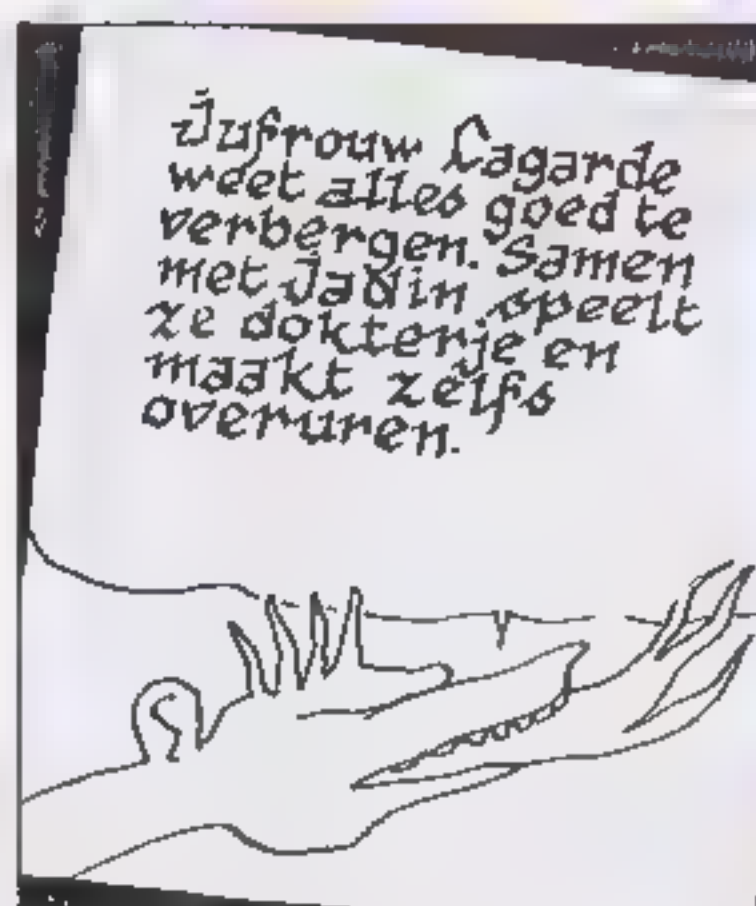 Jufrouw Lagarde
weet alles goed te
verbergen. Samen
met Jadin speelt
ze dokterje en
maakt zelfs
overuren.